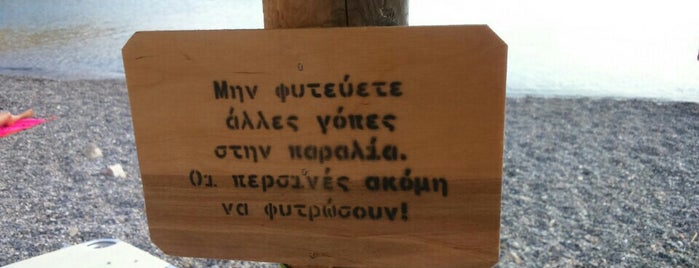 Μην φυτεύετε
άλλες γόπες
στην παραλία.
Οι περσινές ακόμη
να φυτρώσουν!